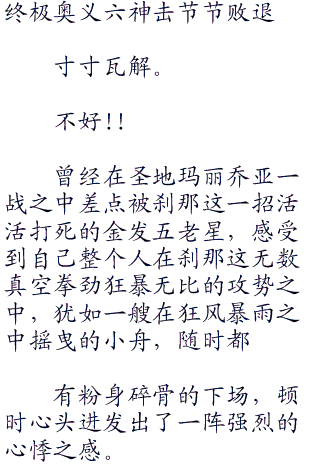 终极奥义六神击节节败退
寸寸瓦解。
不好!!
曾经在圣地玛丽乔亚一
战之中差点被刹那这一招活
活打死的金发五老星，感受
到自己整个人在刹那这无数
真空拳劲狂暴无比的攻势之
中，犹如一艘在狂风暴雨之
中摇曳的小舟，随时都
有粉身碎骨的下场，顿
时心头迸发出了一阵强烈的
心悸之感。